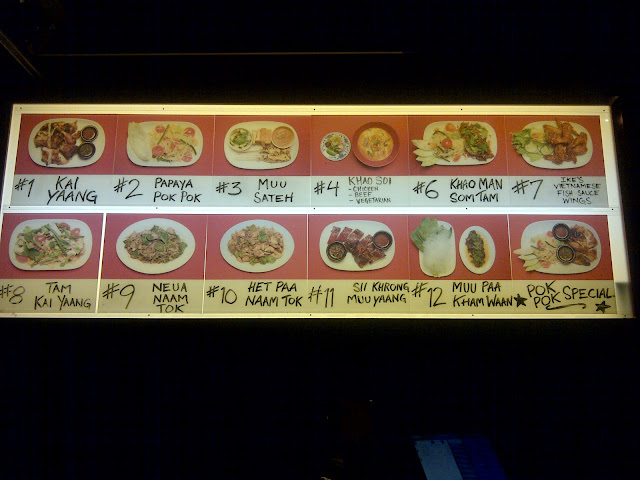 #1 KAI
YAANG
#2 PAPAYA
POK POK
#3 MUU
SATEH
#4 KHAO SOI
- CHICKEN
- BEEF
- VEGETARIAN
#6 KHAO MAN
SOM TAM
#7 IKE'S
VIETNAMESE
FISH SAUCE
WINGS
#8 TAM
KAI YAANG
#9 NEUA
NAAM
TOK
#10 HET PAA
NAAM TOK
#11 SII KHRONG
MUU YAANG
#12 MUU PAA
KHAM WAAN
★ POK
POK SPECIAL ★